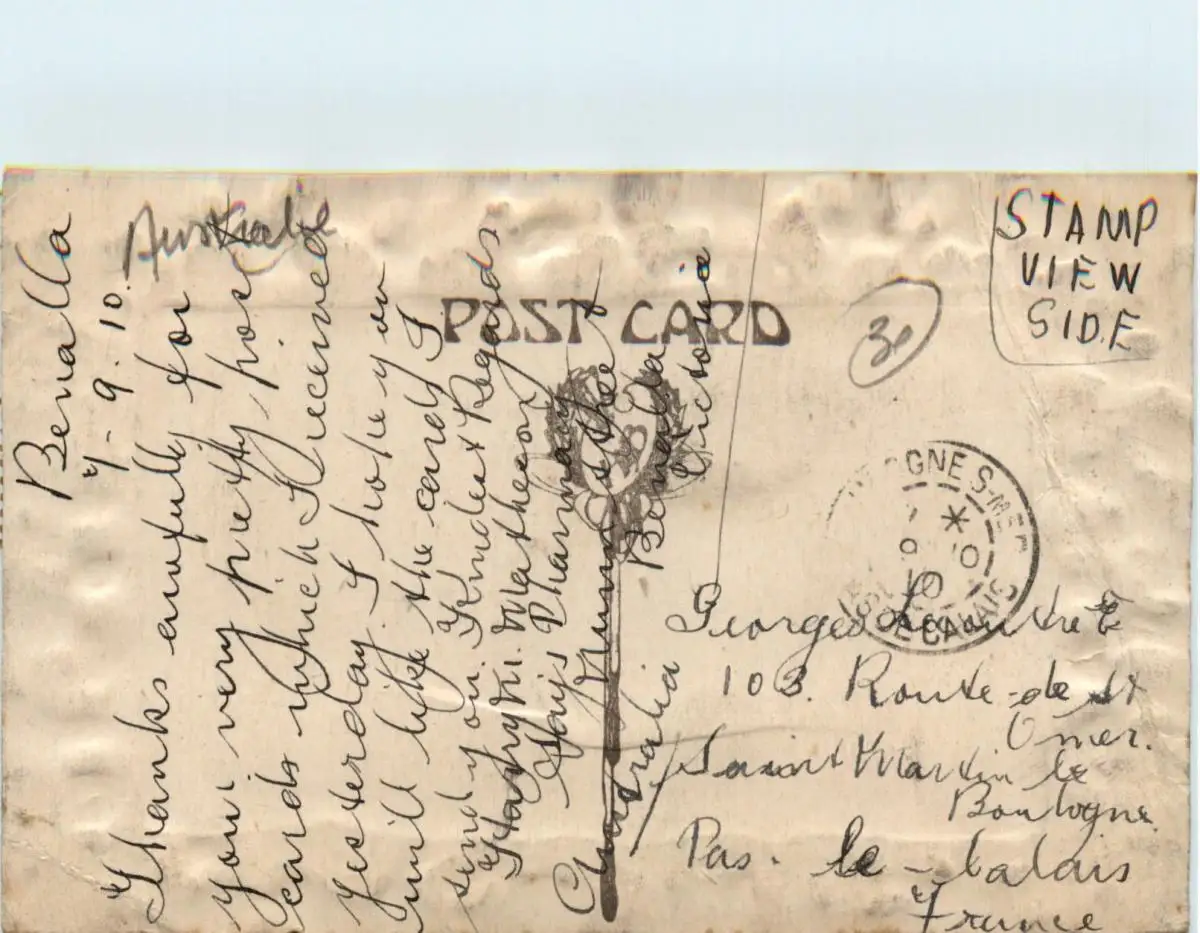 Benalla
7-9.10.
Australie
Thanks awfully for
your very pretty post
cards which I received
yesterday. I hope you
will like the card I
send you. Kindest Regards
Harry M. Matheson
Hays Pharmacy
Nunn Street
Benalla
Victoria
Australia
POST CARD
STAMP
VIEW
SIDE
30
OGNE S-MER
PAS DE CALAIS
Georges
103. Route-de St
Omer.
Saint Martin le
Boulogne.
Pas. de-Calais
France